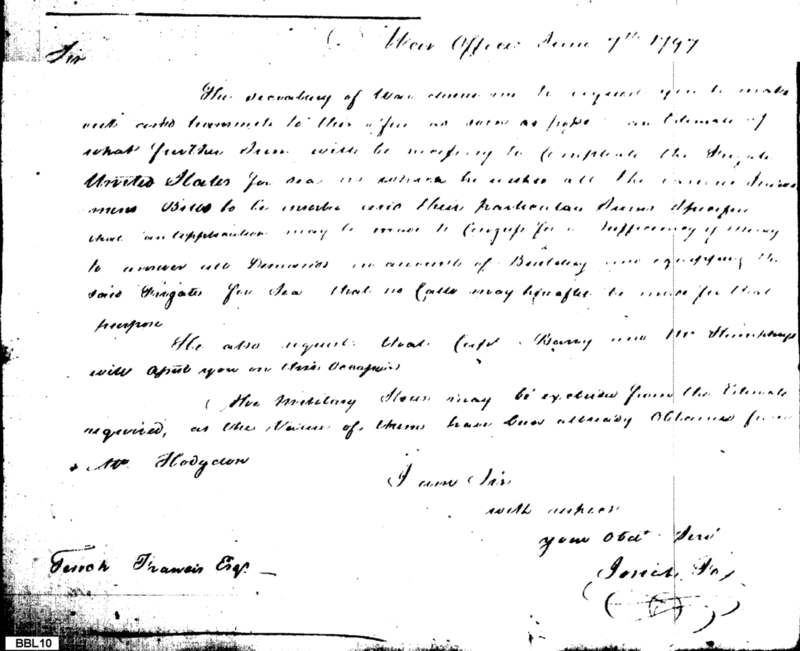 War Office June 7th 1797
Sir
The Secretary of War directs me to request you to make
out and transmit to this office as soon as poss. an Estimate of
what further Sum will be necessary to Compleate the Frigate
United States for Sea in which he wishes all the various
Bills to be inserted and their particular Sums Specified
that an application may be made to Congress for a Sufficiency of Money
to answer all Demands on account of Building and equipping the
said Frigates for Sea that no Calls may hereafter be made for that
purpose
He also requests that Capt Barry and Mr Humphreys
will assist you on this Occasion
The Military Stores may be excluded from the Estimate
required, as the Value of them have been already Obtained from
Mr. Hodgdon
I am Sir
with
your Obdt Serv
Josiah Fox
Tench Francis Esqr.
BBL10